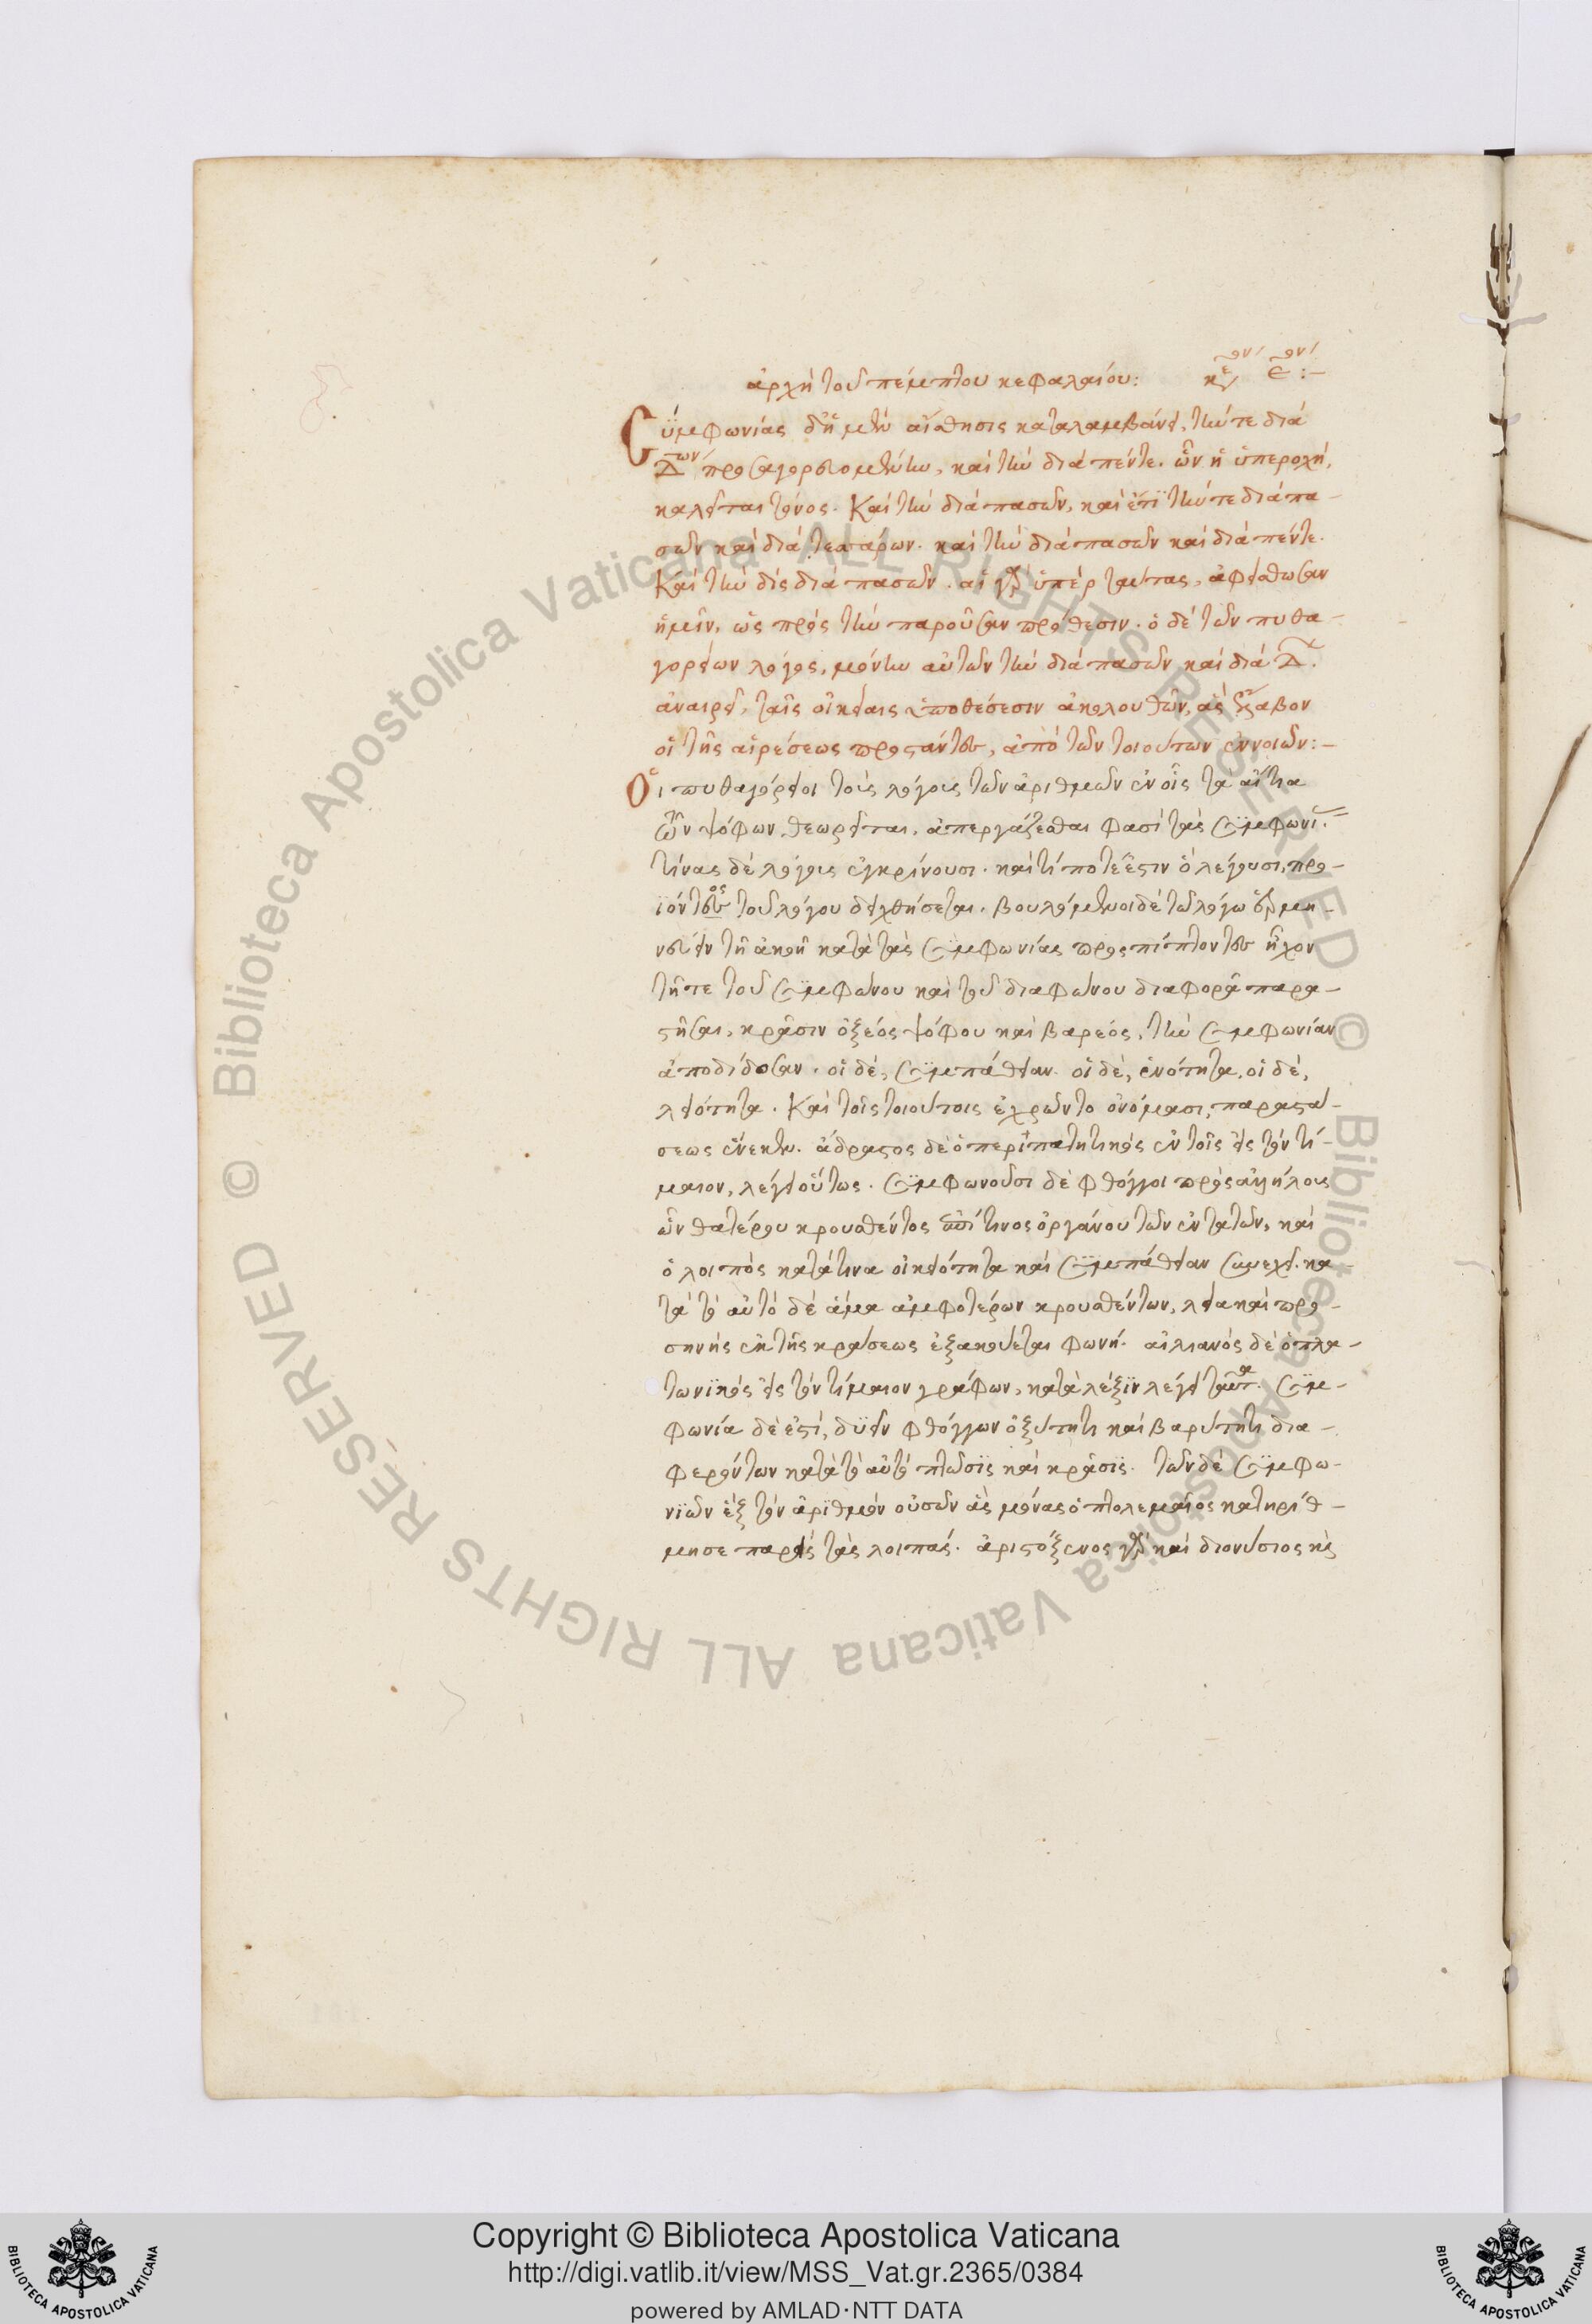 ἀρχὴ τοῦ πέμπτου κεφαλαίου: κε ͞ον ε ͞ον :–
Συμφωνίας δὴ μὲν αἴσθησις καταλαμβάνει, τήν τε διὰ
Δων προσαγορευομένην, καὶ τὴν διὰ πέντε. ὧν ἡ ὑπεροχή,
καλεῖται τόνος. Καὶ τὴν διὰ πασῶν, καὶ ἐτϊ τήν τε διὰ πα-
σῶν καὶ διὰ τεσσάρων. καὶ τὴν διὰ πασῶν καὶ διὰ πέντε.
Καὶ τὴν δὶς διὰ πασῶν. αἱ γὰρ ὑπὲρ ταύτας, ἀφείσθωσαν
ἡμῖν, ὡς πρὸς τὴν παροῦσαν πρόθεσιν. ὁ δὲ τῶν πυθα-
γορείων λόγος, μόνην αὐτῶν τὴν διὰ πασῶν καὶ διὰ Δ.
ἀναιρεῖ, ταῖς οἰκείαις ὑποθέσεσιν ἀκολουθῶν, ἃς ἔλαβον
οἱ τῆς αἱρέσεως προστάντες, ἀπὸ τῶν τοιούτων ἐννοιῶν:–
Οἱ πυθαγόρειοι τοὺς λόγους τῶν ἀριθμῶν ἐν οἷς τὰ αἴτια
τῶν ψόφων θεωρεῖται, ἀπεργάζεσθαι φασὶ τὰς συμφωνί.
τίνας δὲ λόγους ἐγκρίνουσι. καὶ τί ποτέ ἐστιν ὃ λέγουσι, προ-
ϊόντος τοῦ λόγου δειχθήσεται. βουλόμενοι δὲ τῶ λόγω ἑρμη-
νεύειν τῆ ἀκοῆ κατὰ τὰς συμφωνίας προσπίπτοντες ἦχον
τῆς τε τοῦ συμφώνου καὶ τοῦ διαφώνου διαφορὰ παρα-
στῆσαι, κρᾶσιν ὀξέος ψόφου καὶ βαρέος, τὴν συμφωνίαν
ἀποδίδοσαν. οἱ δὲ, συμπάθειαν. οἱ δὲ, ἑνότητα, οἱ δὲ,
λειότητα. Καὶ τοῖς τοιούτοις ἐχρῶντο ὀνόμασι, παραστά-
σεως ἕνεκεν. ἄδραστος δὲ ὁ περιπατητικὸς ἐν τοῖς εἰς τὸν τί-
μαιον, λέγει οὕτως. συμφωνοῦσι δὲ φθόγγοι πρὸς ἀλλήλους
ὧν θατέρου κρουσθέντος ἐπί τινος ὀργάνου τῶν ἐντατῶν, καὶ
ὁ λοιπὸς κατά τινα οἰκειότητα καὶ συμπάθειαν συνεχεῖ. κα-
τὰ τὸ αὐτὸ δὲ ἅμα ἀμφοτέρων κρουσθέντων, λεία καὶ προ-
σηνὴς ἐκ τῆς κράσεως ἐξακούεται φωνή. αἰλιανὸς δὲ ὁ πλα-
τωνϊκὸς εἰς τὸν τίμαιον γράφων, κατὰ λέξϊν λέγει ταῦτα. Συμ-
φωνία δὲ ἐστὶ, δυεῖν φθόγγων ὀξύτητι καὶ βαρύτητι δια-
φερόντων κατὰ τὸ αὐτὸ πτῶσϊς καὶ κρᾶσϊς. τῶν δὲ συμφω-
νϊῶν ἓξ τὸν ἀρϊθμὸν οὐσῶν ἃς μόνας ὁ πτολεμαῖος κατηρίθ-
μησε παρεὶς τὰς λοιπάς. ἀριστόξενος γὰρ καὶ διονύσιος καὶ
Copyright © Biblioteca Apostolica Vaticana
http://digi.vatlib.it/view/MSS_Vat.gr.2365/0384
powered by AMLAD·NTT DATA